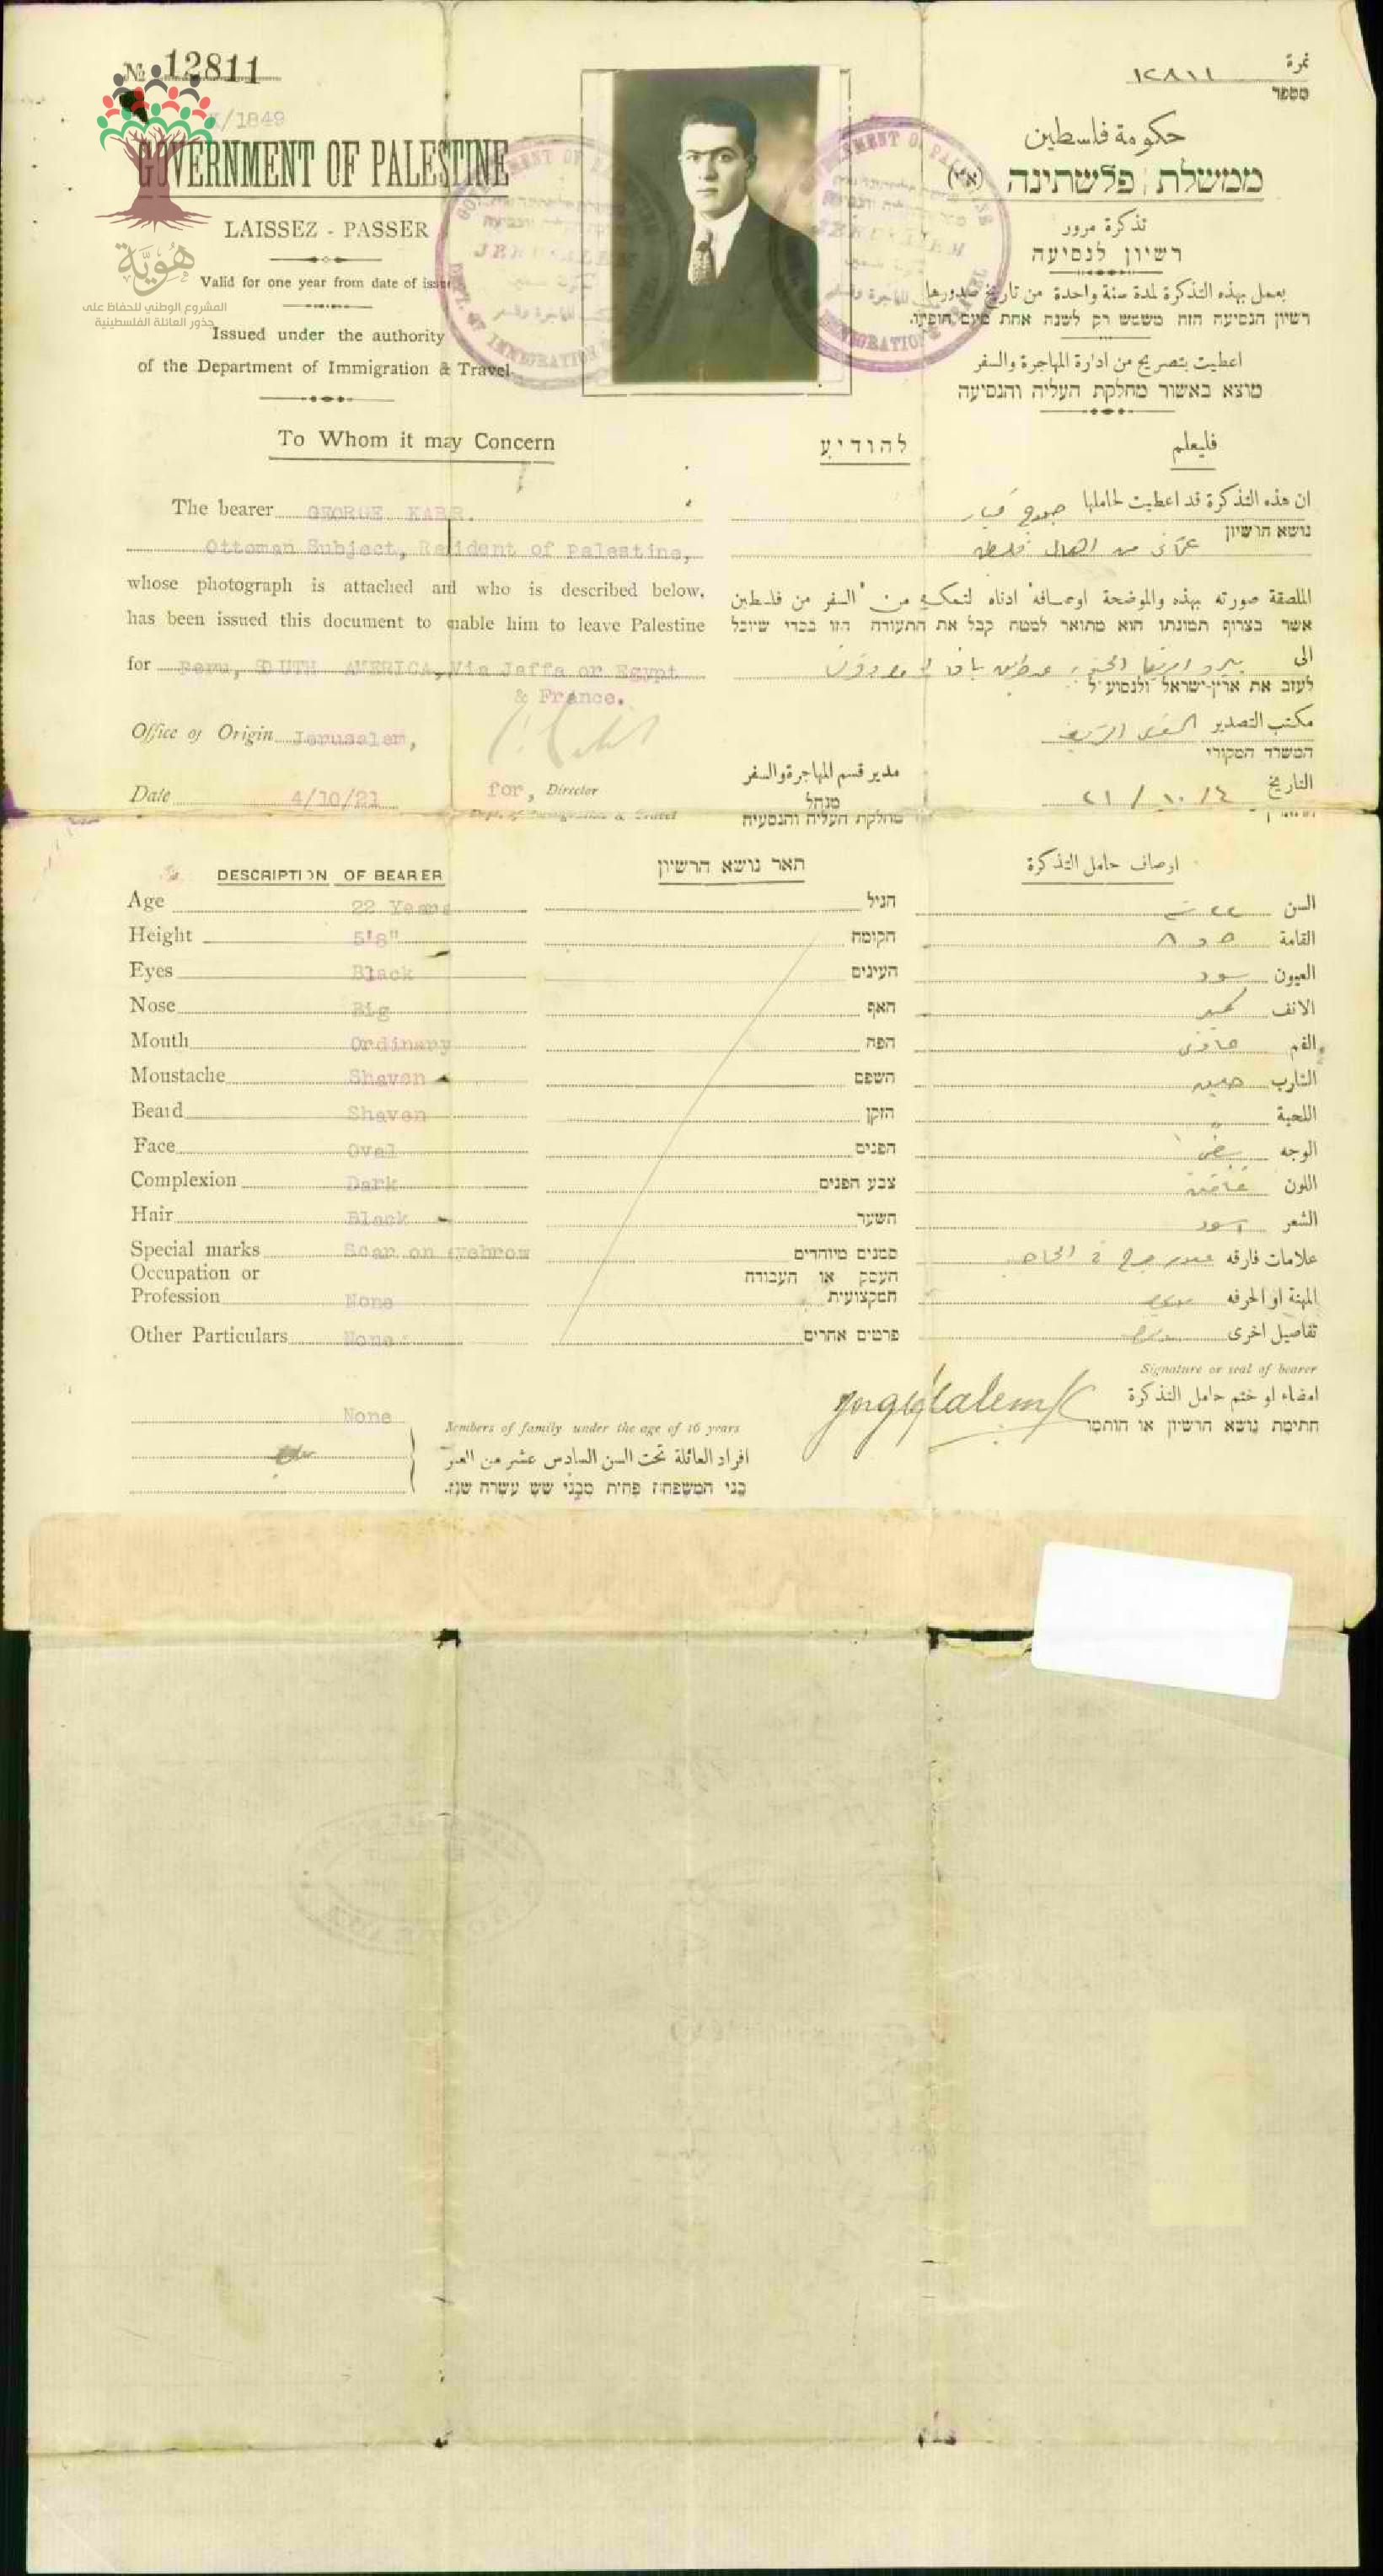 № 12811
/1849
GOVERNMENT OF PALESTINE
LAISSEZ - PASSER
Valid for one year from date of issue
Issued under the authority
of the Department of Immigration & Travel
هُوِيَّة
المشروع الوطني للحفاظ على
جذور العائلة الفلسطينية
نمرة ١٢٨١١
מספר
حكومة فلسطين
ממשלת פלשתינה (א״י)
تذكرة مرور
רשיון לנסיעה
يعمل بهذه التذكرة لمدة سنة واحدة من تاريخ صدورها
רשיון הנסיעה הזה משמש רק לשנה אחת מיום
اعطيت بتصريح من ادارة المهاجرة والسفر
מוצא באשור מחלקת העליה והנסיעה
JERUSALEM
To Whom it may Concern
להודיע
فليعلم
The bearer GEORGE
Ottoman Subject, Resident of Palestine,
whose photograph is attached and who is described below,
has been issued this document to enable him to leave Palestine
for Peru, SOUTH AMERICA, Via Jaffa or Egypt
& France.
Office of Origin Jerusalem,
Date 4/10/21
for, Director
Dept. of Immigration & Travel
ان هذه التذكرة قد اعطيت لحاملها
נושא הרשיון
الملصقة صورته بهذه والموضحة اوصافه ادناه لتمكينه من السفر من فلسطين
אשר בצרוף תמונתו הוא מתואר למטה קבל את התעודה הזו בכדי שיוכל
الى
לעזב את ארץ־ישראל ולנסוע ל
مكتب التصدير القدس الشريف
המשרד המקורי
التاريخ ٤/١٠/٢١
مدير قسم المهاجرة والسفر
מנהל
מחלקת העליה והנסיעה
DESCRIPTION OF BEARER
תאר נושא הרשיון
اوصاف حامل التذكرة
Age 22 Years
הגיל
السن ٢٢ سنة
Height 5'8"
הקומה
القامة ٥ و ٨
Eyes Black
העינים
العيون سود
Nose Big
האף
الانف كبير
Mouth Ordinary
הפה
الفم
Moustache Shaven
השפם
الشارب
Beard Shaven
הזקן
اللحية
Face Oval
הפנים
الوجه
Complexion Dark
צבע הפנים
اللون
Hair Black
השער
الشعر اسود
Special marks Scar on eyebrow
סמנים מיוחדים
علامات فارقه
Occupation or
Profession None
העסק או העבודה
המקצועית
المهنة او الحرفه
Other Particulars None
פרטים אחרים
تفاصيل اخرى
Signature or seal of bearer
امضاء او ختم حامل التذكرة
חתימת נושא הרשיון או חותמו
None
Members of family under the age of 16 years
افراد العائلة تحت السن السادس عشر من العمر
בני המשפחה פחות מבני שש עשרה שנה.